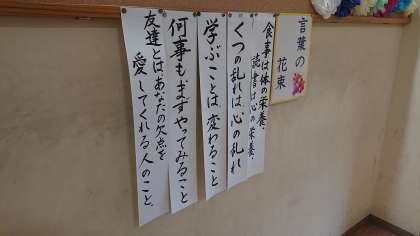 言葉の
花束
食事は体の栄養、
読書は心の栄養、
くつの乱れは心の乱れ
学ぶことは変わること
何事もまずやってみること
友達とは、あなたの欠点を
愛してくれる人のこと。